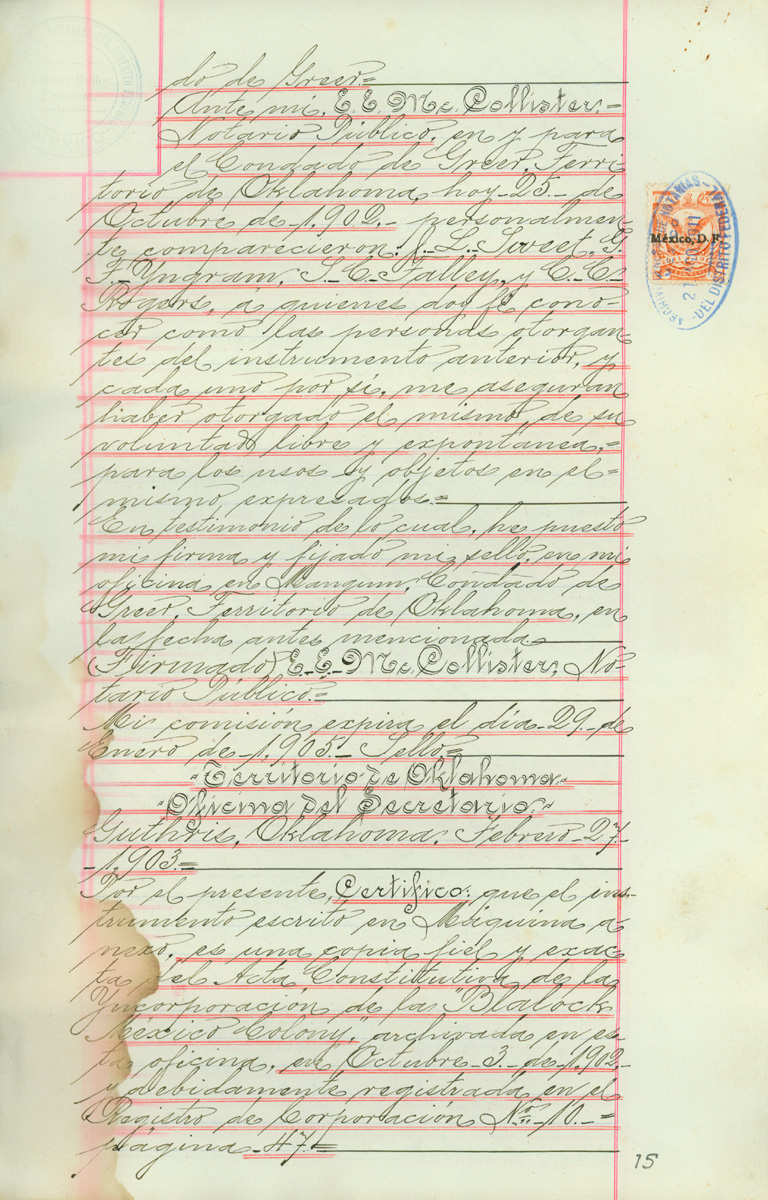 do de Greer=
Ante mi, E. E. Mc. Collister,=
Notario Público, en y para
el Condado de Greer, Terri
torio de Oklahoma, hoy 25 de
Octubre de 1,902, personalmen
te comparecieron: J. L. Sweet, G.
T. Yngram, S. C. Talley, y C. C.
Rogers, á quienes doy fé cono-
cer como las personas otorgan
tes del instrumento anterior, y
cada uno por sí, me aseguran
haber otorgado el mismo de su
voluntad libre y expontanea,=
para los usos y objetos en el=
mismo expresados.=
En testimonio de lo cual, he puesto
mi firma y fijado mi sello, en mi
oficina en Mangum, Condado de
Greer, Territorio de Oklahoma, en
las fecha antes mencionada
(Firmado) E. E. Mc. Collister, No-
tario Público.=
Mi comisión expira el día 29 de
Enero de 1,905. Sello=
"Territorio de Oklahoma"
"Oficina del Secretario"
Guthris, Oklahoma, Febrero 27
1,903=
Por el presente, Certifico: que el ins-
trumento escrito en Máquina a-
nexo, es una copia fiel y exac
ta del Acta Constitutiva de la
Yncorporación de la "Blalock
México Colony," archivada en es-
ta oficina, en Octubre 3 de 1,902,
y debidamente registrada en el
Registro de Corporación No. 10 =
página 47=
15
México, D. F.
ARCHIVO DE NOTARIAS
DEL DISTRITO FEDERAL